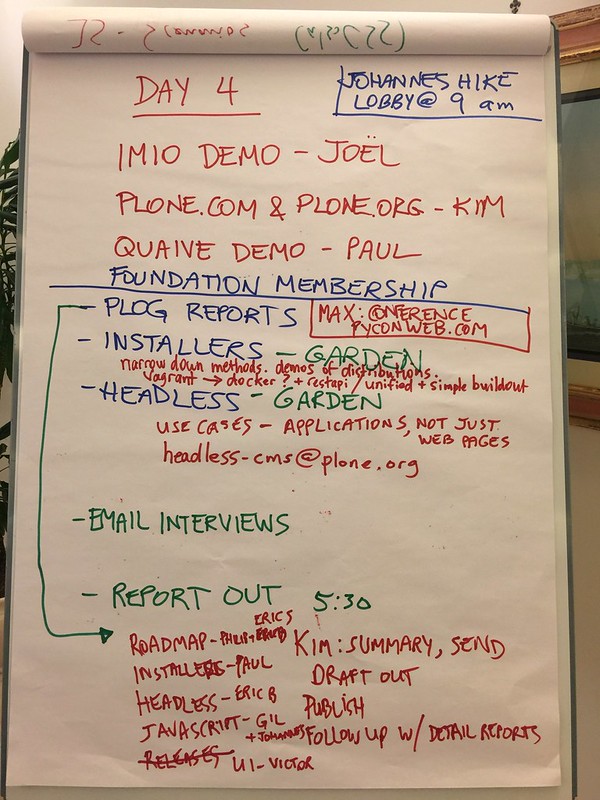 DAY 4
JOHANNES HIKE
LOBBY @ 9 am
IMIO DEMO - JOËL
PLONE.COM & PLONE.ORG - KIM
QUAIVE DEMO - PAUL
FOUNDATION MEMBERSHIP
- PLOG REPORTS
MAX: CONFERENCE
PYCONWEB.COM
- INSTALLERS - GARDEN
narrow down methods. demos of distributions.
vagrant → docker ? + restapi / unified + simple buildout
- HEADLESS - GARDEN
USE CASES - APPLICATIONS, NOT JUST
WEB PAGES
headless-cms@plone.org
- EMAIL INTERVIEWS
- REPORT OUT 5:30
ERIC S
ROADMAP - PHILIP +
INSTALLERS - PAUL
HEADLESS - ERIC B
JAVASCRIPT - GIL
+ JOHANNES
RELEASES UI - VICTOR
KIM: SUMMARY, SEND
DRAFT OUT
PUBLISH
FOLLOW UP W/ DETAIL REPORTS